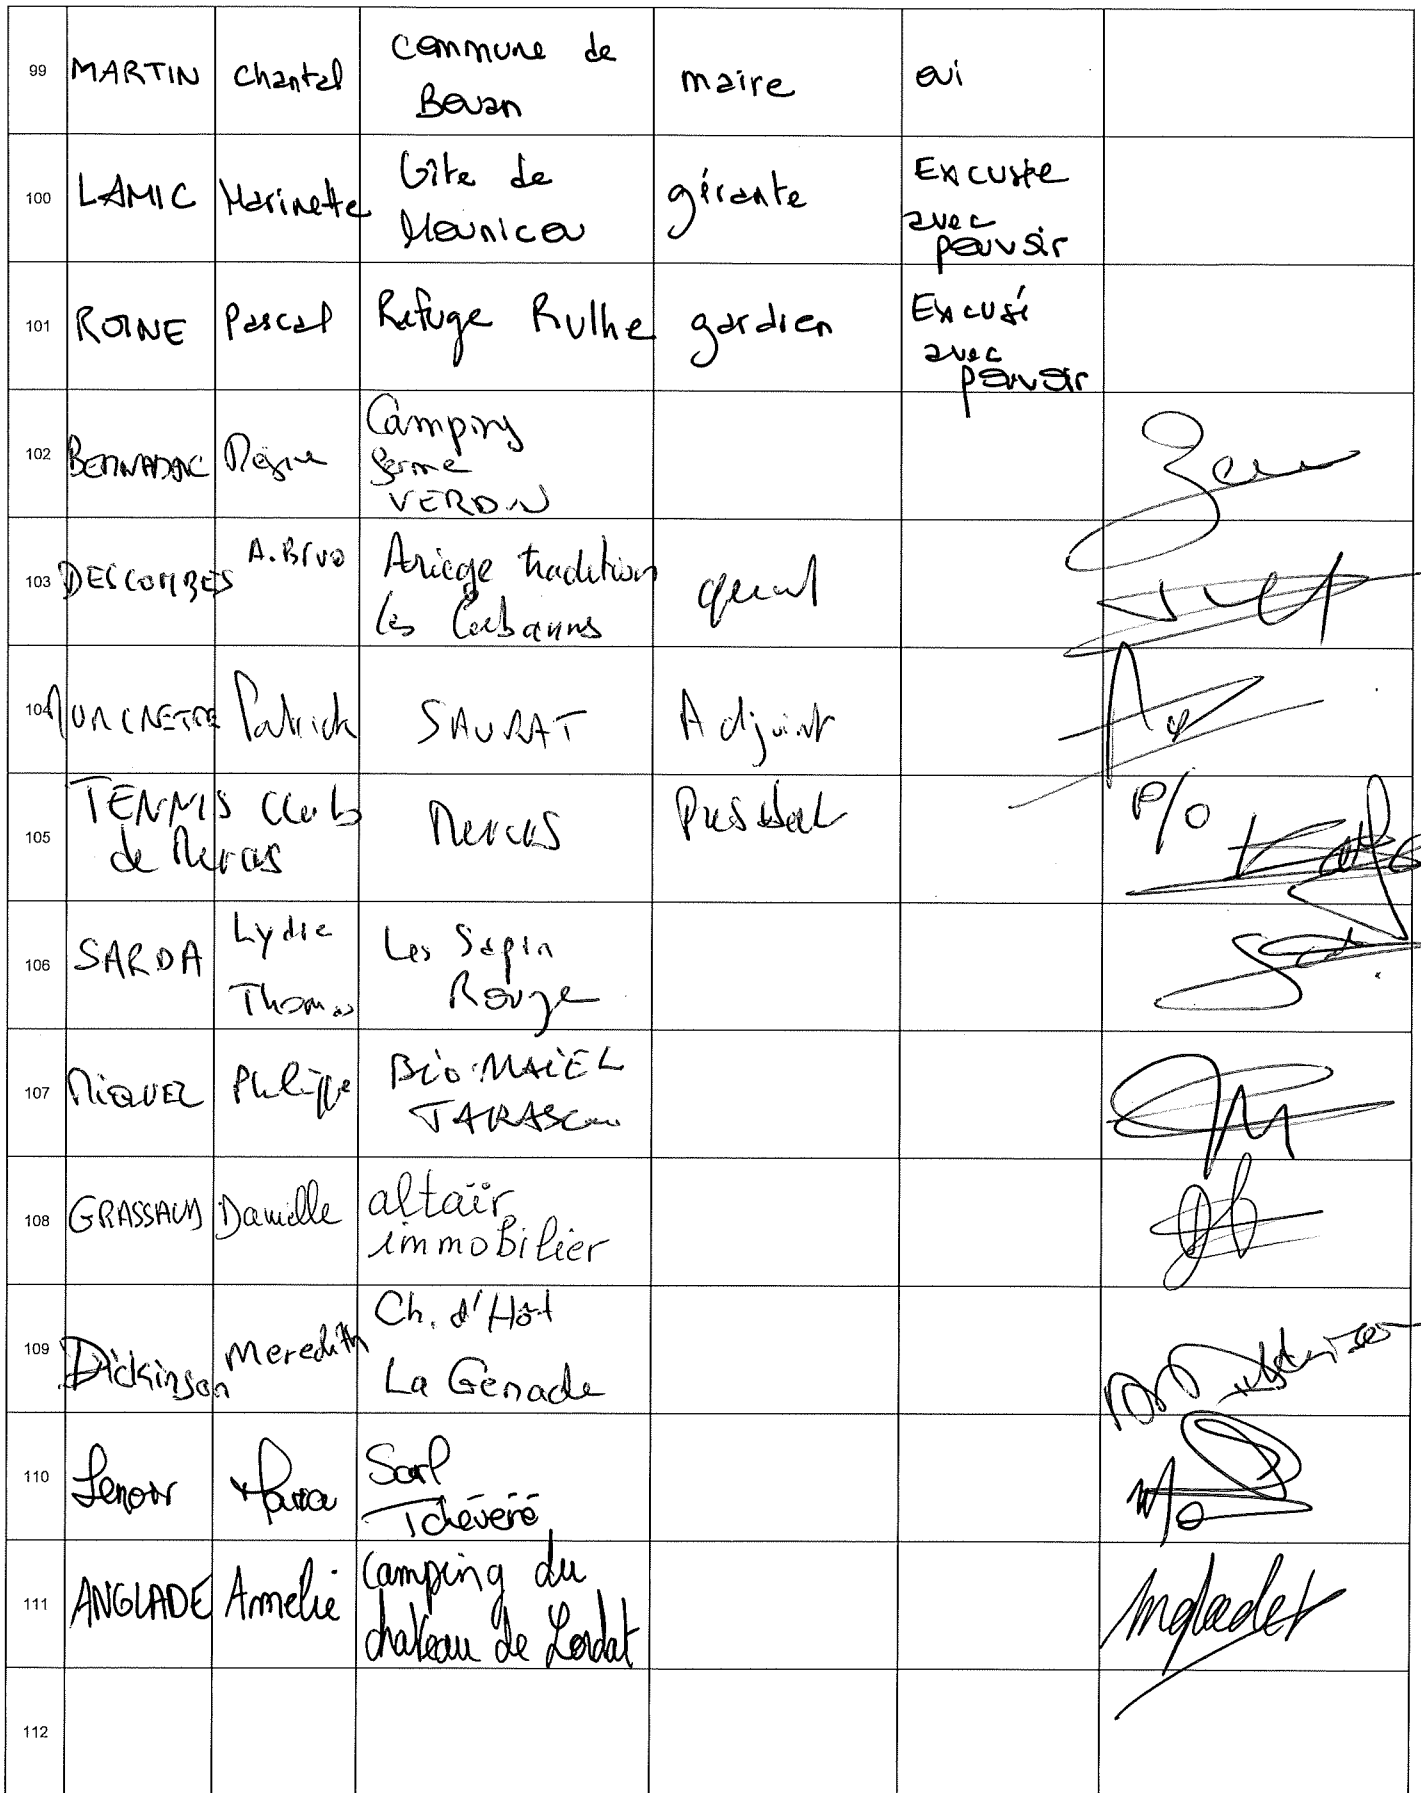 99 MARTIN Chantal Commune de Bouan maire oui
100 LAMIC Marinette Gîte de Mounicou gérante Excusée avec pouvoir
101 ROINE Pascal Refuge Rulhe gardien Excusé avec pouvoir
102 Régine Camping ferme VERDUN
103 DESCOMBES A. Ariège tradition les
104 Patrick SAURAT Adjoint
105 TENNIS Club de Mercus Mercus President P/O
106 SARDA Lydie Thomas Les Sapin Rouge
107 MIQUEL Philippe TARASCON
108 GRASSAUD Danielle altaïr immobilier
109 Dickinson Meredith Ch. d'Hôt La Genade
110 Lenoir Sarl Tchévéré
111 ANGLADE Amelie Camping du chateau de Lordat
112